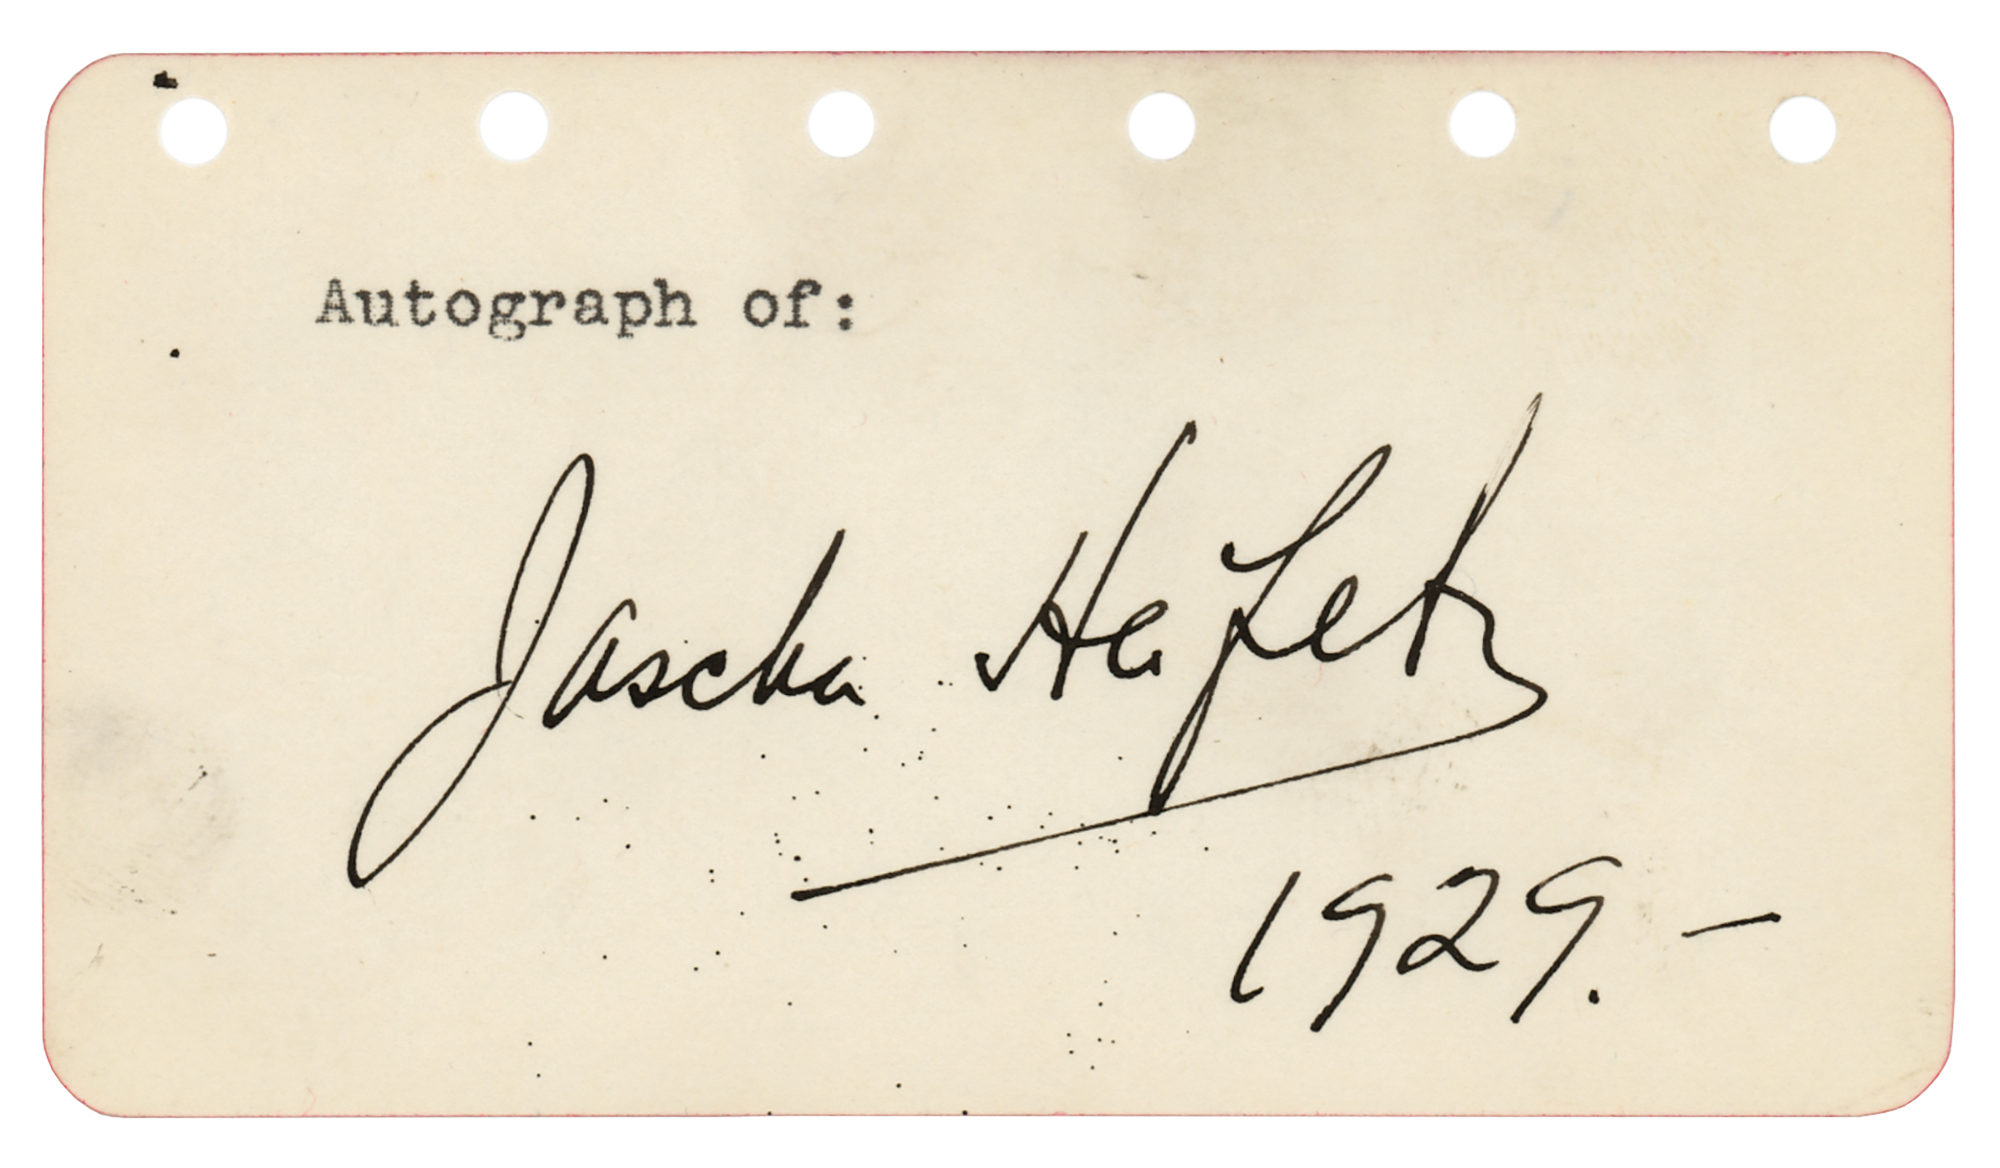 Autograph of:
Jascha Heifetz
1929. –